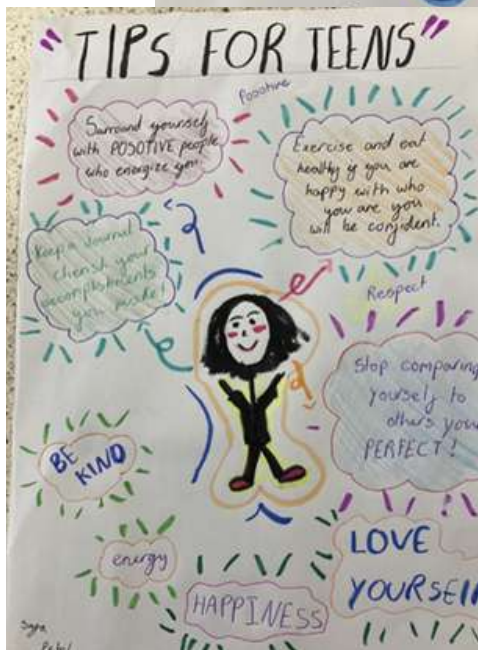 "TIPS FOR TEENS"
Posotive
Surround yourself
with POSOTIVE people
who energize you.
Exercise and eat
healthy if you are
happy with who
you are you
will be confident.
Keep a Journal
cherish your
accomplishments
you made!
Respect
Stop comparing
yourself to
others your
PERFECT!
BE
KIND
energy
LOVE
YOURSELF
HAPPINESS